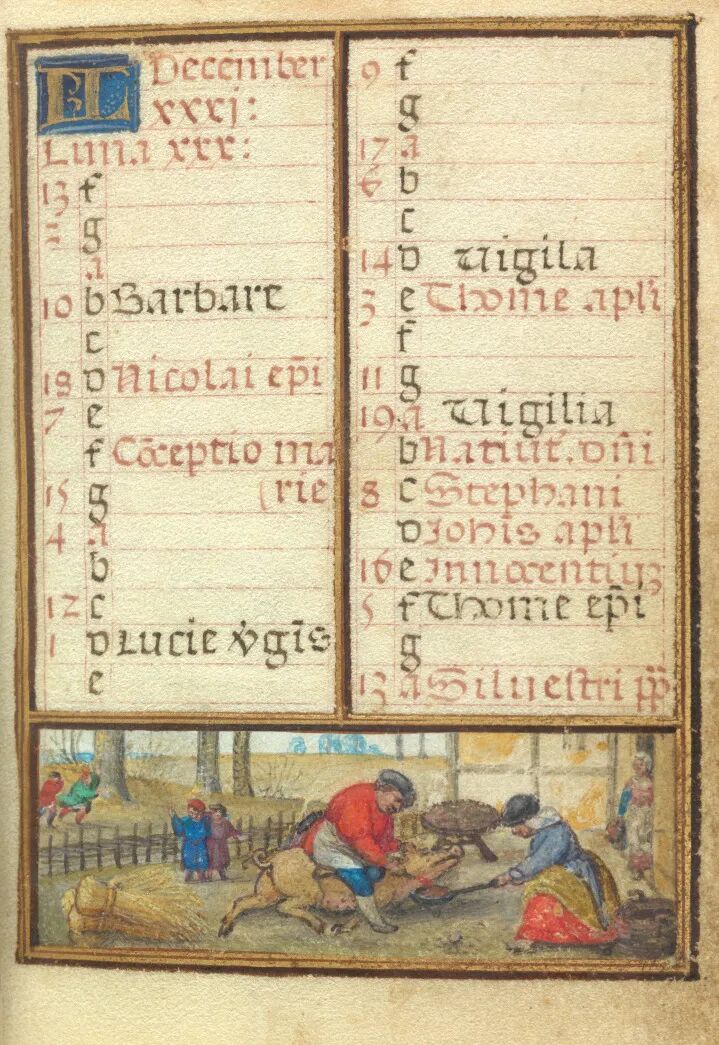 KL December
xxxj:
Luna xxx:
13 f
g
a
10 b Barbare
c
18 d Nicolai ep̄i
7 e
f Cōceptio ma
(rie
15 g
4 a
b
12 c
1 d Lucie v̇gīs
e
9 f
g
17 a
6 b
c
14 d Vigila
3 e Thome apl̄i
f
11 g
19 a Vigilia
b Natiuit. dn̄i
8 c Stephani
d Joh̄is apl̄i
16 e Innocentiū
5 f Thome ep̄i
g
13 a Siluestri pp̄